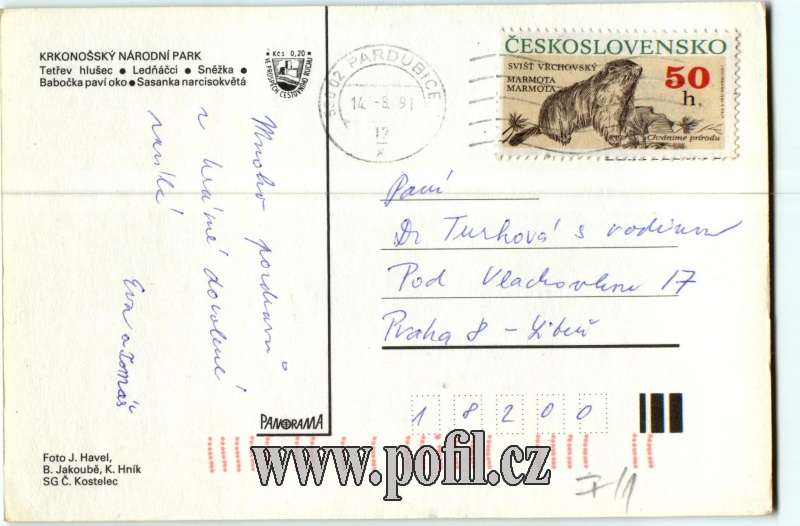 KRKONOŠSKÝ NÁRODNÍ PARK
Tetřev hlušec ● Ledňáčci ● Sněžka ●
Babočka paví oko ● Sasanka narcisokvětá
Kčs 0,20
VE PROSPĚCH CESTOVNÍHO RUCHU
530 02 PARDUBICE
14.-8.91
12
x
ČESKOSLOVENSKO
SVIŠŤ VRCHOVSKÝ
MARMOTA
MARMOTA
50
h.
Chraňme přírodu
Mnoho pozdravů
z krásné dovolené
zasílá
Eva a Tomáš
Paní
Dr Turková s rodinou
Pod Vlachovkou 17
Praha 8 - Libeň
18200
PANORAMA
Foto J. Havel,
B. Jakoubě, K. Hník
SG Č. Kostelec
www.pofil.cz